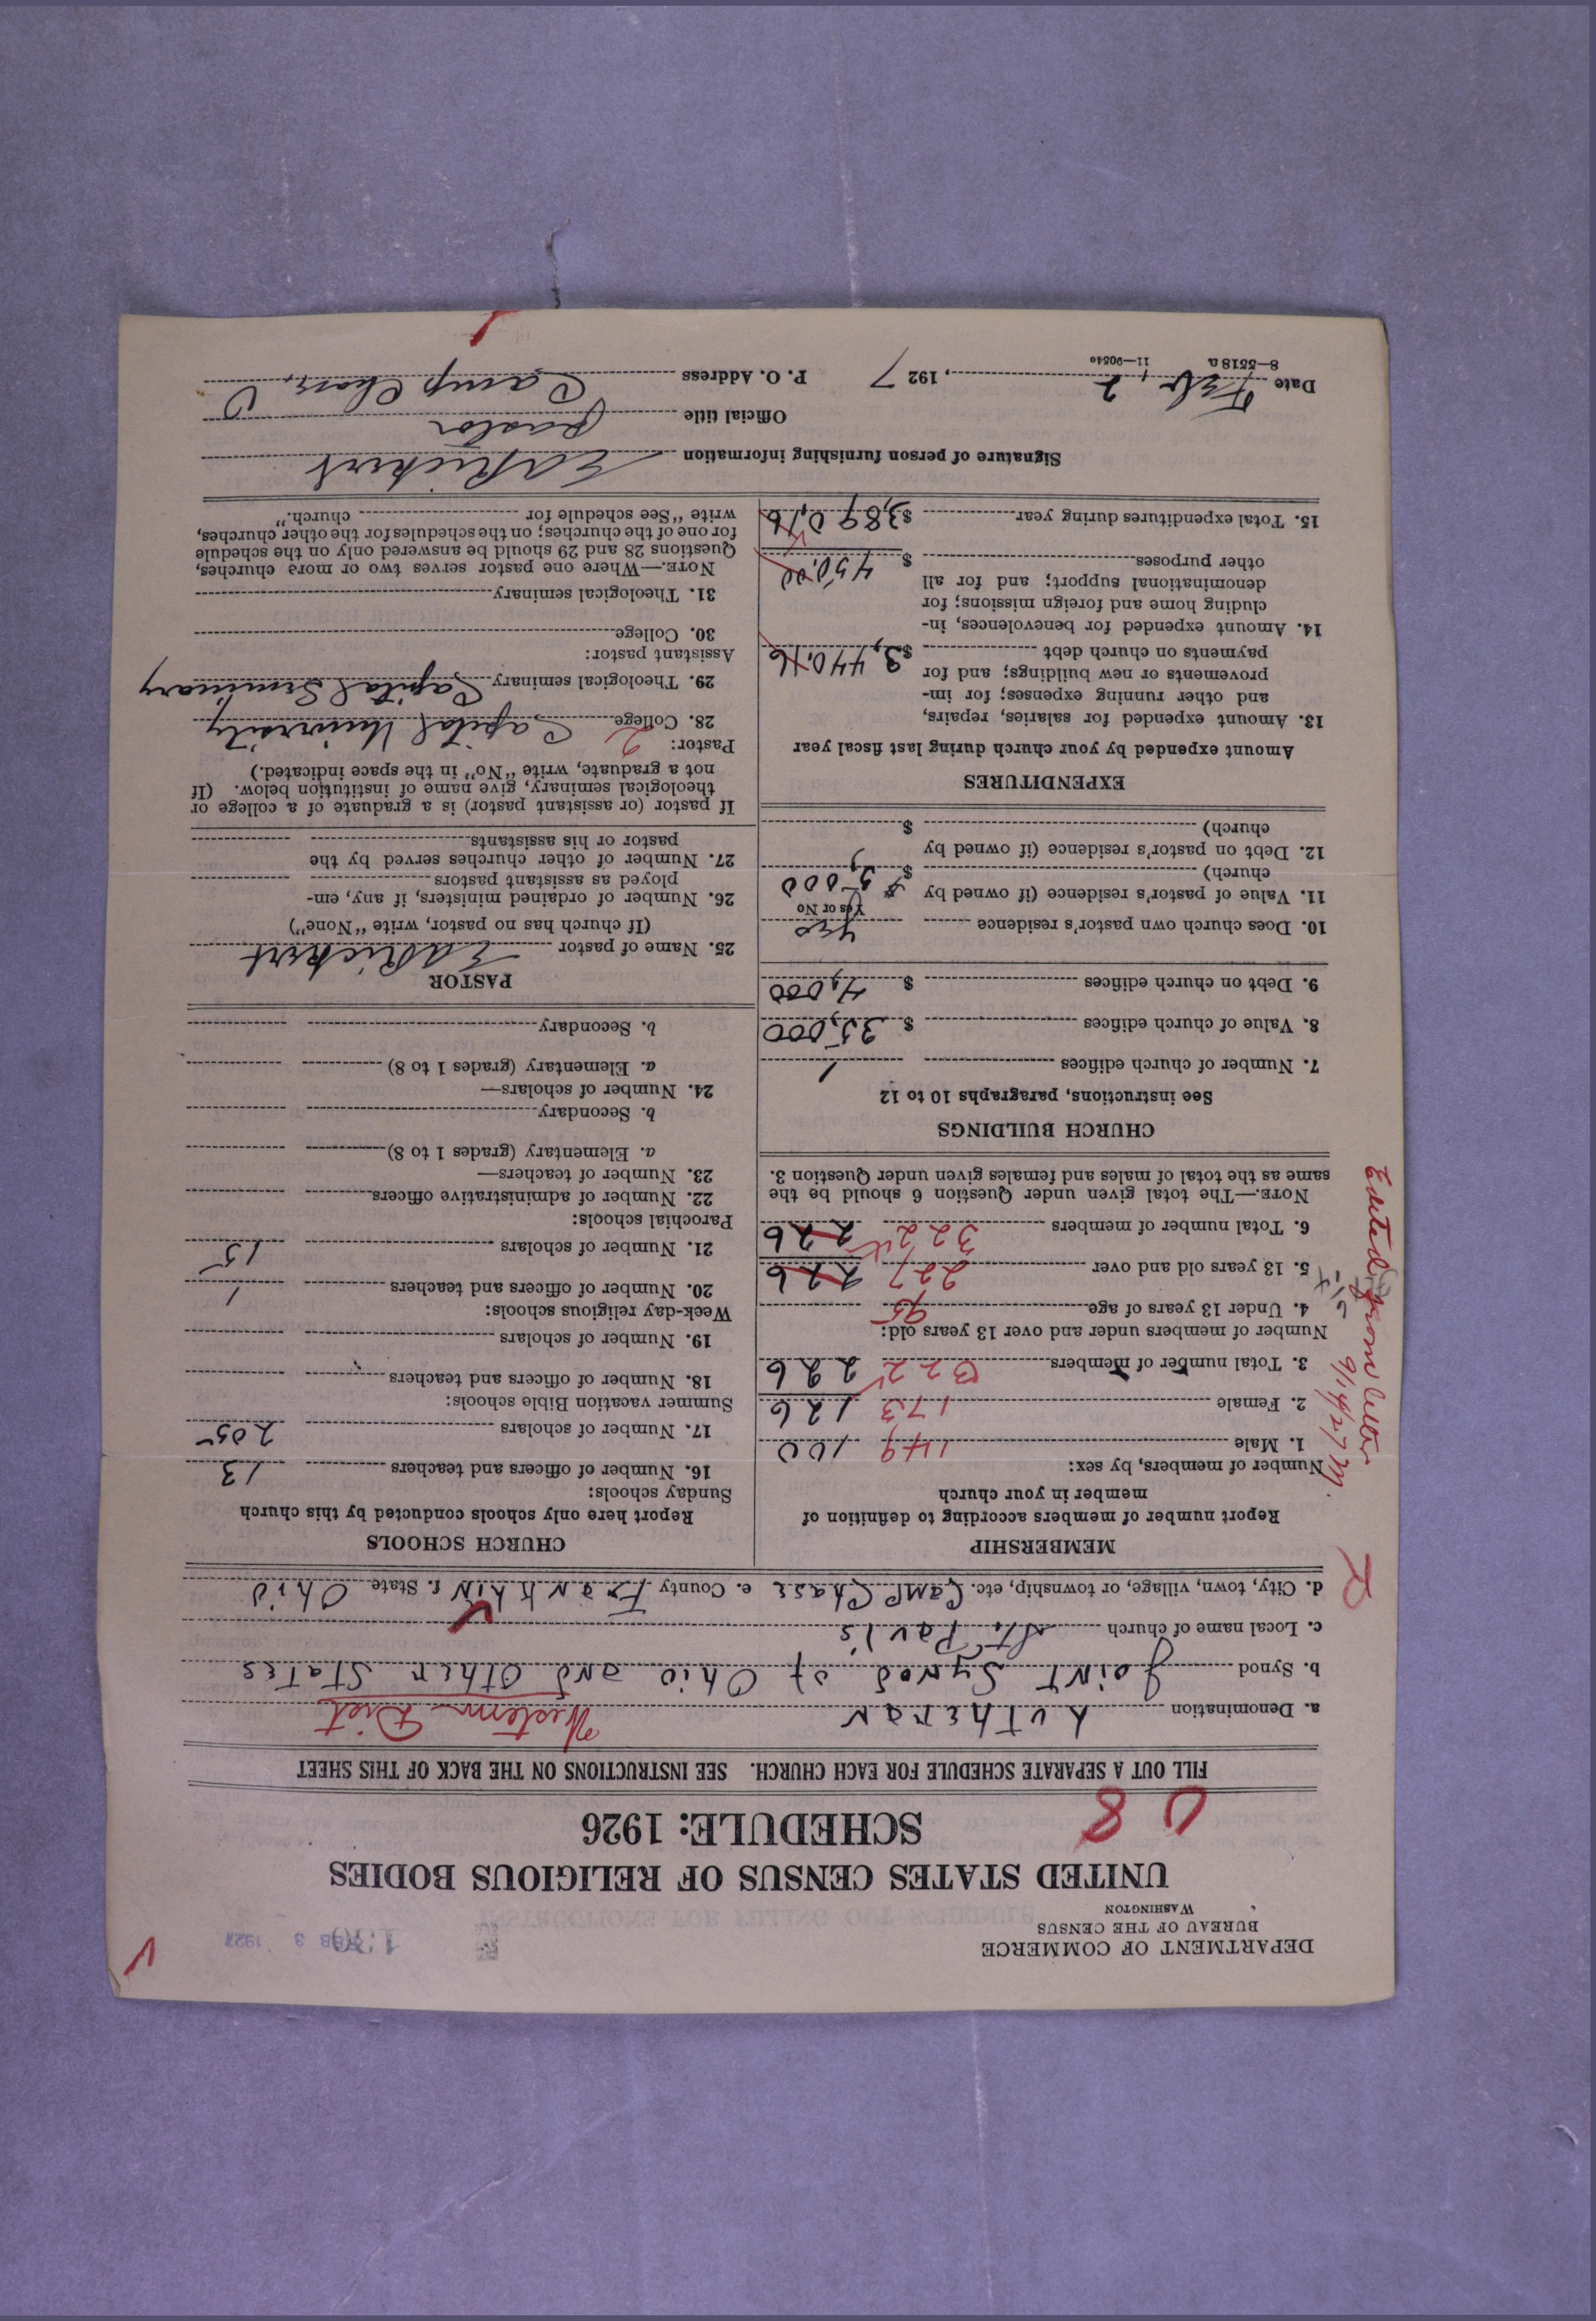 DEPARTMENT OF COMMERCE
BUREAU OF THE CENSUS
WASHINGTON
FEB 3 1927
UNITED STATES CENSUS OF RELIGIOUS BODIES
SCHEDULE: 1926
08
FILL OUT A SEPARATE SCHEDULE FOR EACH CHURCH. SEE INSTRUCTIONS ON THE BACK OF THIS SHEET
a. Denomination Lutheran Western Dist
b. Synod Joint Synod of Ohio and Other States
c. Local name of church St. Paul's
d. City, town, village, or township, etc. Camp Chase e. County Franklin f. State Ohio
MEMBERSHIP
Report number of members according to definition of
member in your church
Number of members, by sex:
1. Male 149 100
2. Female 173 126
3. Total number of members 322 226
Number of members under and over 13 years old:
4. Under 13 years of age 95
5. 13 years old and over 227 226
6. Total number of members 322 226
NOTE.—The total given under Question 6 should be the
same as the total of males and females given under Question 3.
Edited from letter
9/14/27 M.
CHURCH BUILDINGS
See instructions, paragraphs 10 to 12
7. Number of church edifices 1
8. Value of church edifices $ 35,000
9. Debt on church edifices $ 4,000
10. Does church own pastor's residence yes
Yes or No
11. Value of pastor's residence (if owned by
church) $ 5,000
12. Debt on pastor's residence (if owned by
church) $
EXPENDITURES
Amount expended by your church during last fiscal year
13. Amount expended for salaries, repairs,
and other running expenses; for im-
provements or new buildings; and for
payments on church debt $3,440.16
14. Amount expended for benevolences, in-
cluding home and foreign missions; for
denominational support; and for all
other purposes $ 450.00
15. Total expenditures during year $3,890.16
CHURCH SCHOOLS
Report here only schools conducted by this church
Sunday schools:
16. Number of officers and teachers 13
17. Number of scholars 205
Summer vacation Bible schools:
18. Number of officers and teachers
19. Number of scholars
Week-day religious schools:
20. Number of officers and teachers 1
21. Number of scholars 15
Parochial schools:
22. Number of administrative officers
23. Number of teachers—
a. Elementary (grades 1 to 8)
b. Secondary
24. Number of scholars—
a. Elementary (grades 1 to 8)
b. Secondary
PASTOR
25. Name of pastor E A Rickert
(If church has no pastor, write "None")
26. Number of ordained ministers, if any, em-
ployed as assistant pastors
27. Number of other churches served by the
pastor or his assistants
If pastor (or assistant pastor) is a graduate of a college or
theological seminary, give name of institution below. (If
not a graduate, write "No" in the space indicated.)
Pastor: 2
28. College Capital University
29. Theological seminary Capital Seminary
Assistant pastor:
30. College
31. Theological seminary
NOTE.—Where one pastor serves two or more churches,
Questions 28 and 29 should be answered only on the schedule
for one of the churches; on the schedules for the other churches,
write "See schedule for church."
Signature of person furnishing information E A Rickert
Official title pastor
Date Feb. 2, 1927 P. O. Address Camp Chase, O
8—5518a 11—9051o